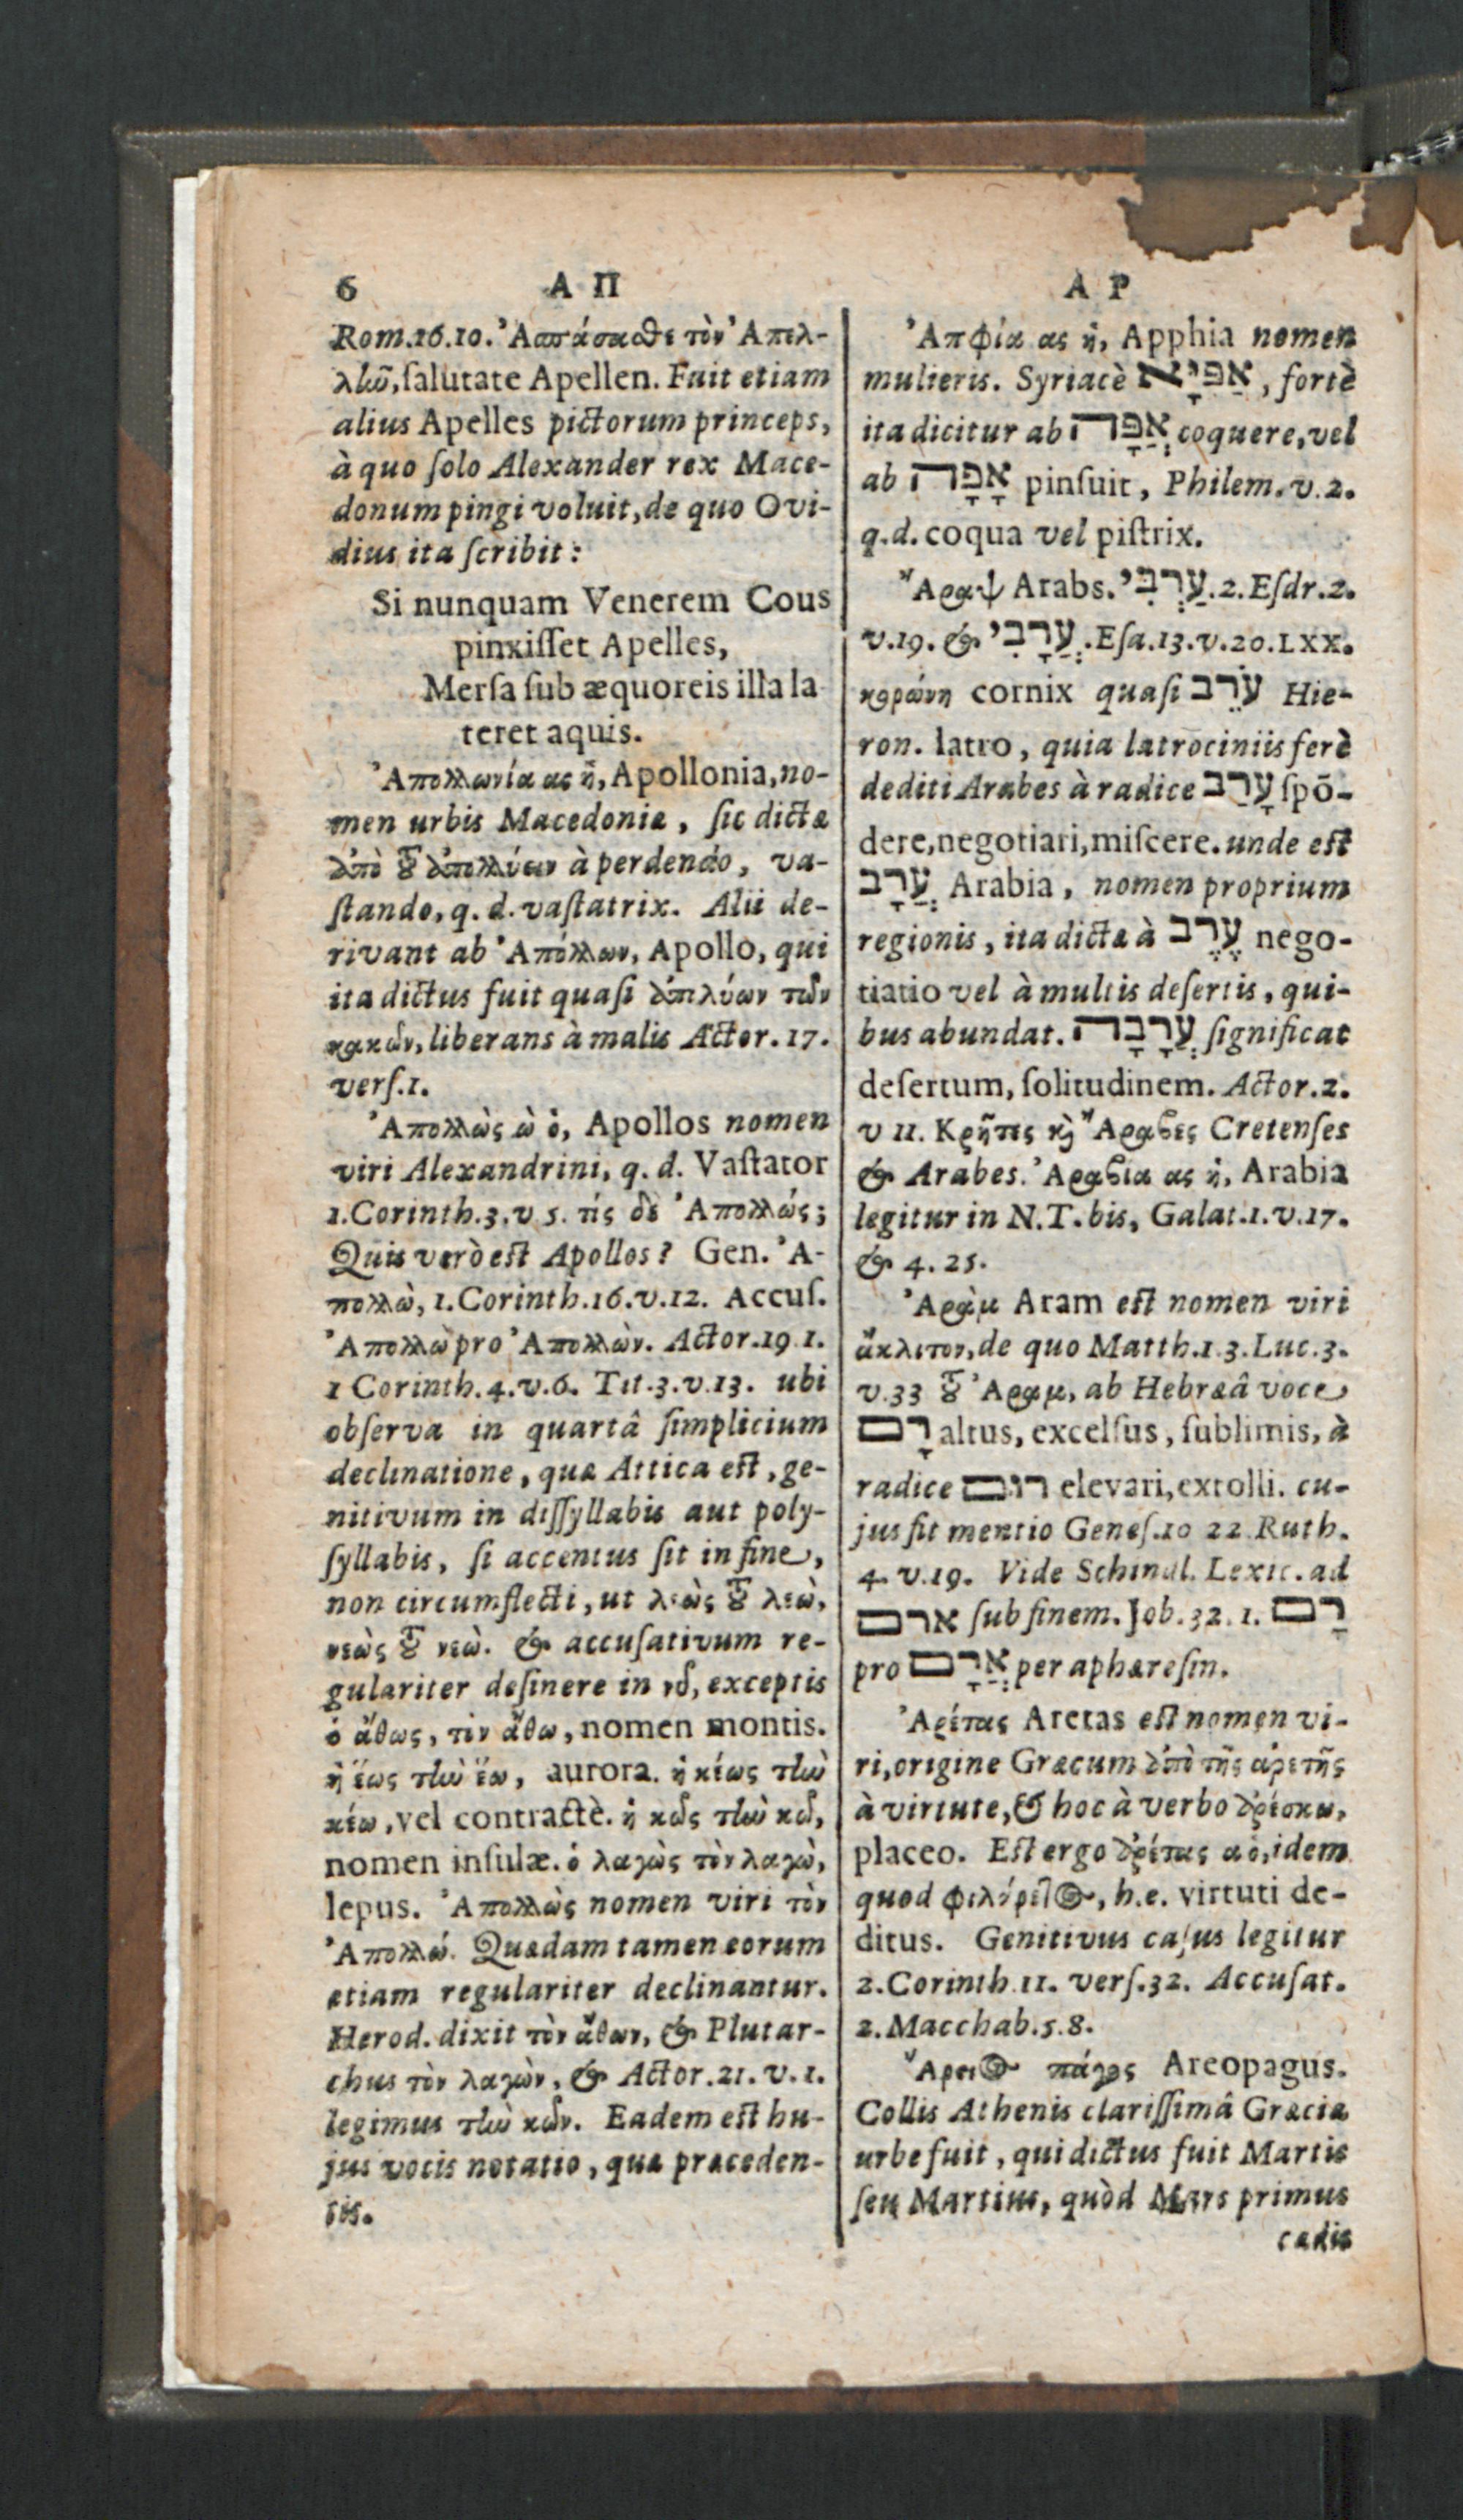 6 Α Π
Rom.16.10. Ἀσπάσασθε τὸν Ἀπελ-
λῆν, ſalutate Apellen. Fuit etiam
alius Apelles pictorum princeps,
à quo ſolo Alexander rex Mace-
donum pingi voluit, de quo Ovi-
dius ita ſcribit:
Si nunquam Venerem Cous
pinxiſſet Apelles,
Merſa ſub æquoreis illa la
teret aquis.
Ἀπολλωνία ας ἡ, Apollonia, no-
men urbis Macedoniæ, ſic dicta
ἀπὸ τοῦ ἀπολλύειν à perdendo, va-
ſtando, q. d. vaſtatrix. Alii de-
rivant ab Ἀπόλλων, Apollo, qui
ita dictus fuit quaſi ἀπολύων τῶν
κακῶν, liberans à malis Actor. 17.
verſ.1.
Ἀπολλὼς ὼ ὁ, Apollos nomen
viri Alexandrini, q. d. Vaſtator
1.Corinth.3.v 5. τίς δὲ Ἀπολλώς;
Quis verò eſt Apollos? Gen. Ἀ-
πολλὼ, 1.Corinth.16.v.12. Accuſ.
Ἀπολλὼ pro Ἀπολλὼν. Actor.19 1.
1 Corinth.4.v.6. Tit.3.v.13. ubi
obſerva in quartâ ſimplicium
declinatione, quæ Attica eſt, ge-
nitivum in diſſyllabis aut poly-
ſyllabis, ſi accentus ſit in fine,
non circumflecti, ut λεὼς τοῦ λεὼ,
νεὼς τοῦ νεὼ. & accuſativum re-
gulariter deſinere in , exceptis
ὁ ἄθως, τὸν ἄθω, nomen montis.
ἡ ἕως τὴν ἕω, aurora. ἡ κέως τὴν
κέω, vel contractè. ἡ κῶς τὴν κῶ,
nomen inſulæ. ὁ λαγὼς τὸν λαγὼ,
lepus. Ἀπολλὼς nomen viri τὸν
Ἀπολλώ. Quædam tamen eorum
etiam regulariter declinantur.
Herod. dixit τὸν ἄθων, & Plutar-
chus τὸν λαγὼν, & Actor.21. v. 1.
legimus τὴν κῶν. Eadem eſt hu-
jus vocis notatio, quæ præceden-
tis.
Α Ρ
Ἀπφία ας ἡ, Apphia nomen
mulieris. Syriacè אַפִּיָא, fortè
ita dicitur ab אֲפָה coquere, vel
ab אָפָה pinſuit, Philem. v. 2.
q.d. coqua vel piſtrix.
Ἄραψ Arabs. עַרְבִי. 2. Eſdr. 2.
v.19. & עֲרָבִי. Eſa. 13. v. 20. LXX.
κορώνη cornix quaſi עֹרֵב Hie-
ron. latro, quia latrociniis ferè
dediti Arabes à radice עָרַב ſpō-
dere, negotiari, miſcere. unde eſt
עֲרָב Arabia, nomen proprium
regionis, ita dicta à עֶרֶב nego-
tiatio vel à multis deſertis, qui-
bus abundat. עֲרָבָה ſignificat
deſertum, ſolitudinem. Actor. 2.
v 11. Κρῆτες καὶ Ἄραβες Cretenſes
& Arabes. Ἀραβία ας ἡ, Arabia
legitur in N.T. bis, Galat.1.v.17.
& 4. 25.
Ἀρὰμ Aram eſt nomen viri
ἄκλιτον, de quo Matth.1.3. Luc.3.
v.33 τοῦ Ἀραμ, ab Hebræâ voce
רָם altus, excelſus, ſublimis, à
radice רום elevari, extolli. cu-
jus fit mentio Geneſ.10 22 Ruth.
4. v.19. Vide Schindl. Lexic. ad
ארם ſub finem. Job. 32. 1. רָם
pro אֲרָם per aphæreſin.
Ἀρέτας Aretas eſt nomen vi-
ri, origine Græcum ἀπὸ τῆς ἀρετῆς
à virtute, & hoc à verbo ἀρέσκω,
placeo. Eſt ergo ἀρέτας αο, idem
quod φιλάρετος, h.e. virtuti de-
ditus. Genitivus caſus legitur
2. Corinth. 11. verſ.32. Accuſat.
2. Macchab.5.8.
Ἄρειος πάγος Areopagus.
Collis Athenis clariſſimâ Græciæ
urbe fuit, qui dictus fuit Martis
ſeu Martius, quòd Mars primus
cædis